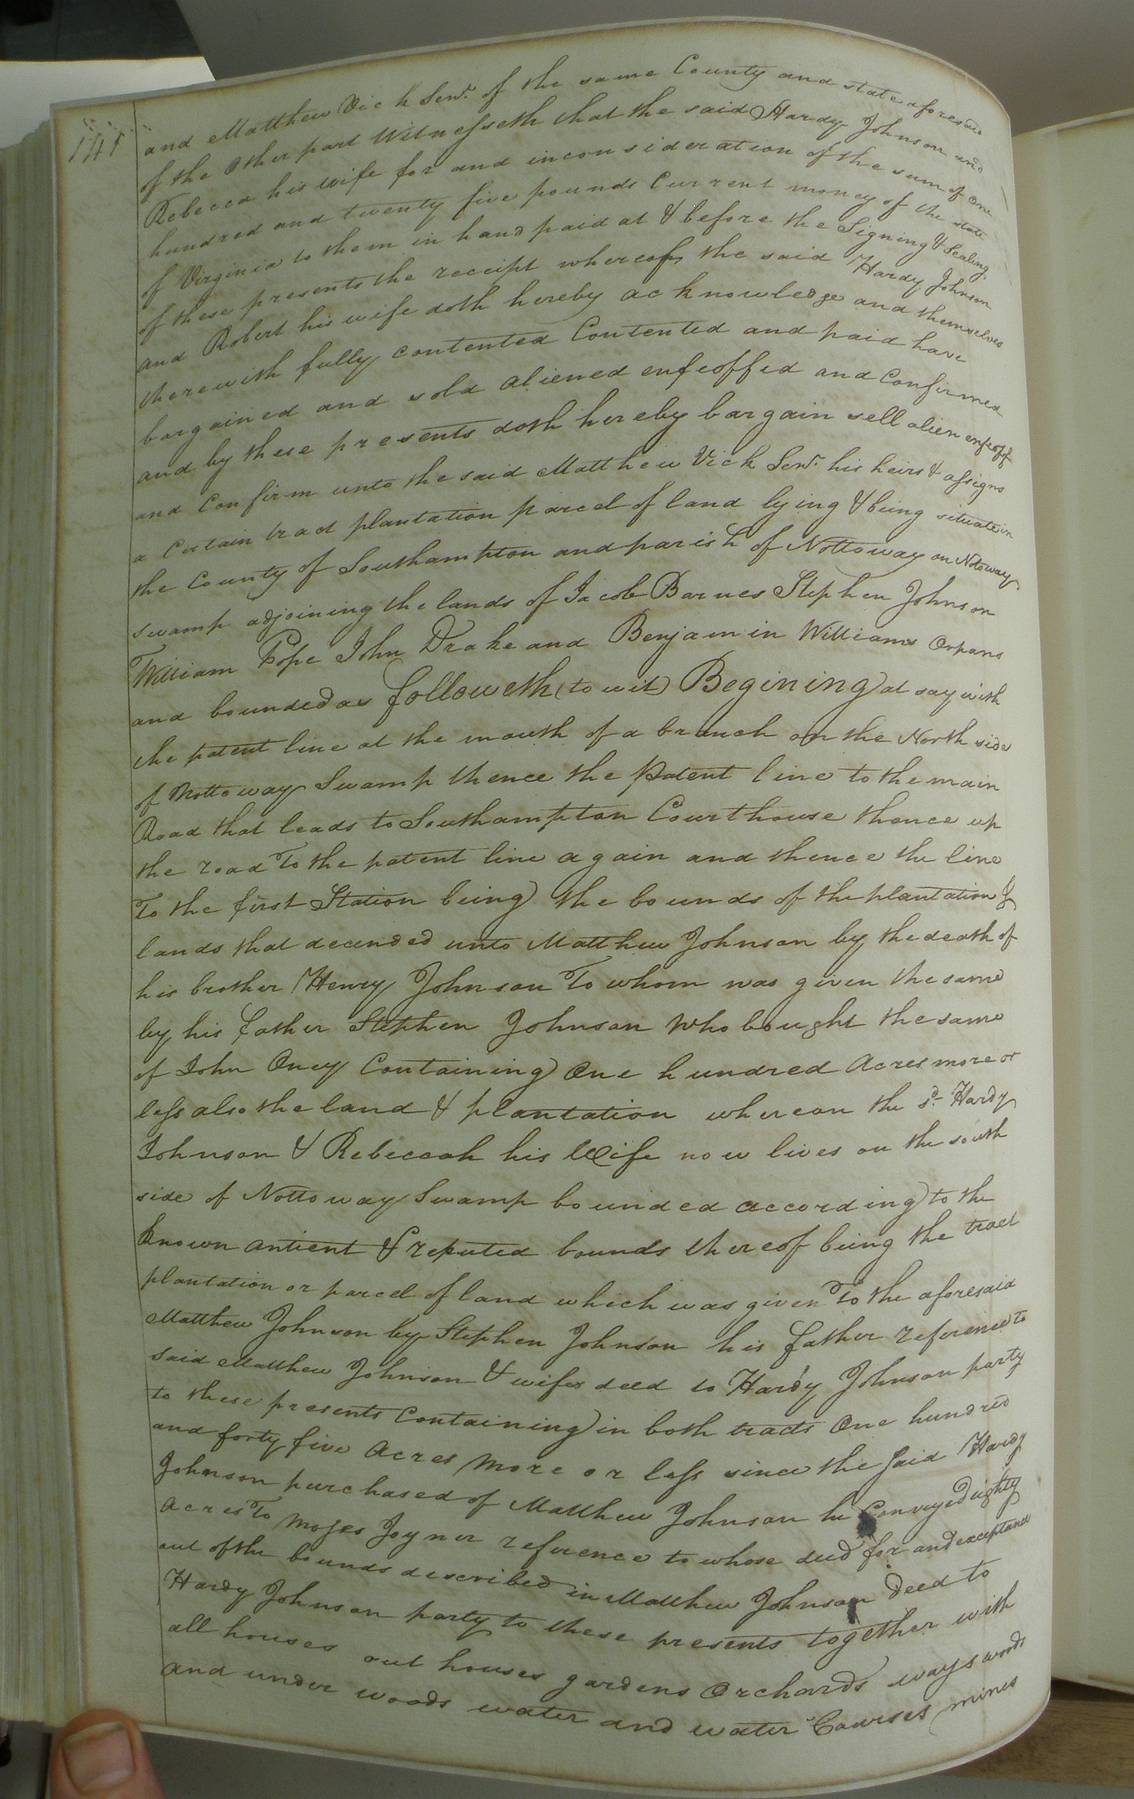 141
and Matthew Vick Senr. of the same County and state aforesaid
of the Other part Witnesseth that the said Hardy Johnson and
Rebecca his wife for and inconsideration of the sum of one
hundred and twenty five pounds Current money of the state
of Virginia to them in hand paid at & before the Signing & Sealing
of these presents the receipt whereof, the said Hardy Johnson
and Robert his wife doth hereby acknowledge and themselves
therewith fully contented Contented and paid have
bargained and sold aliened enfeoffed and Confirmed
and by these presents doth hereby bargain sell alien enfeoff
and Confirm unto the said Matthew Vick Senr. his heirs & assigns
a Certain tract plantation parcel of land lying & being situate in
the County of Southampton and parish of Nottoway on Notoway
swamp adjoining the lands of Jacob Barnes Stephen Johnson
William Pope John Drake and Benjamin Williams Orpans
and bounded as followeth (to wit) Begining at say with
the patent line at the mouth of a branch on the North side
of Nottoway Swamp thence the Patent line to the main
Road that leads to Southampton Courthouse thence up
the road To the patent line again and thence the line
To the first Station being the bounds of the plantation &
lands that decended unto Matthew Johnson by the death of
his brother Henry Johnson To whom was given the same
by his father Stephen Johnson who bought the same
of John Oney Containing One hundred Acres more or
less also the land & plantation whereon the sd. Hardy
Johnson & Rebeccah his Wife now lives on the south
side of Nottoway Swamp bounded according to the
known antient & reputed bounds thereof being the tract
plantation or parcel of land which was given To the aforesaid
Matthew Johnson by Stephen Johnson his father reference to
said Matthew Johnson & wifes deed to Hardy Johnson party
to these presents Containing in both tracts One hundred
and forty five Acres more or less since the said Hardy
Johnson purchased of Matthew Johnson he Conveyed eighty
acres To Moses Joyner reference to whose deed for and exceptance
out of the bounds described in Matthew Johnson Deed to
Hardy Johnson party to these presents together with
all houses out houses gardens Orchards ways woods
and under woods water and water Courses mines